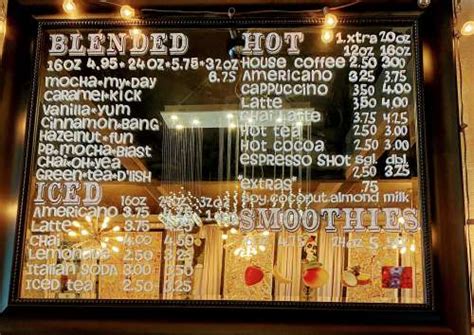 BLENDED
16oz 4.95 * 24oz * 5.75 * 32oz
6.75
mocha*my*DAY
caramel*KICK
vanilla*yum
cinnamon*BANG
Hazelnut*fun
PB*mocha*BLAST
CHai*OH*yea
GREEN*TEA*D'liSH
ICED
16oz 24oz 32oz
Americano 3.75
Latte
CHai 4.00 4.50
Lemonade 2.50 3.25
Italian SODA 3.00
ICED TEA 2.50 3.25
HOT
1.xtra 20oz
12oz 16oz
House coffee 2.50 3.00
Americano 3.25 3.75
CAPPUCCINO 3.50 4.00
Latte 3.50 4.00
CHai Latte 3.75 4.25
Hot tea 2.50
Hot cocoa 2.50 3.50
ESPRESSO SHOT sgl. dbl.
*extras* .75
soy, coconut, almond milk
SMOOTHIES
4.75 24oz